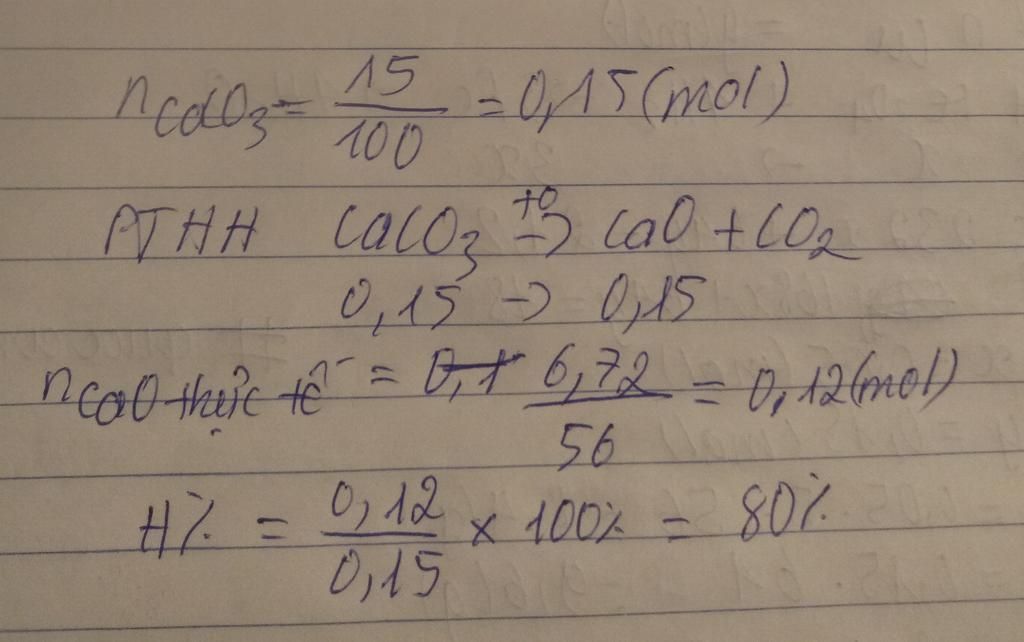 nCaCO3 = 15/100 = 0,15 (mol)
PTHH CaCO3 t0→ CaO + CO2
0,15 → 0,15
nCaO thực tế = 6,72/56 = 0,12 (mol)
H% = 0,12/0,15 × 100% = 80%